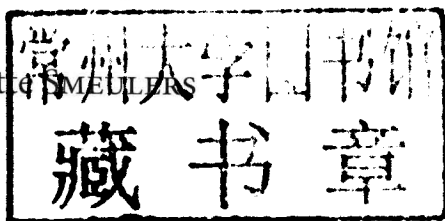 常州大学图书馆
SMEULERS
藏书章